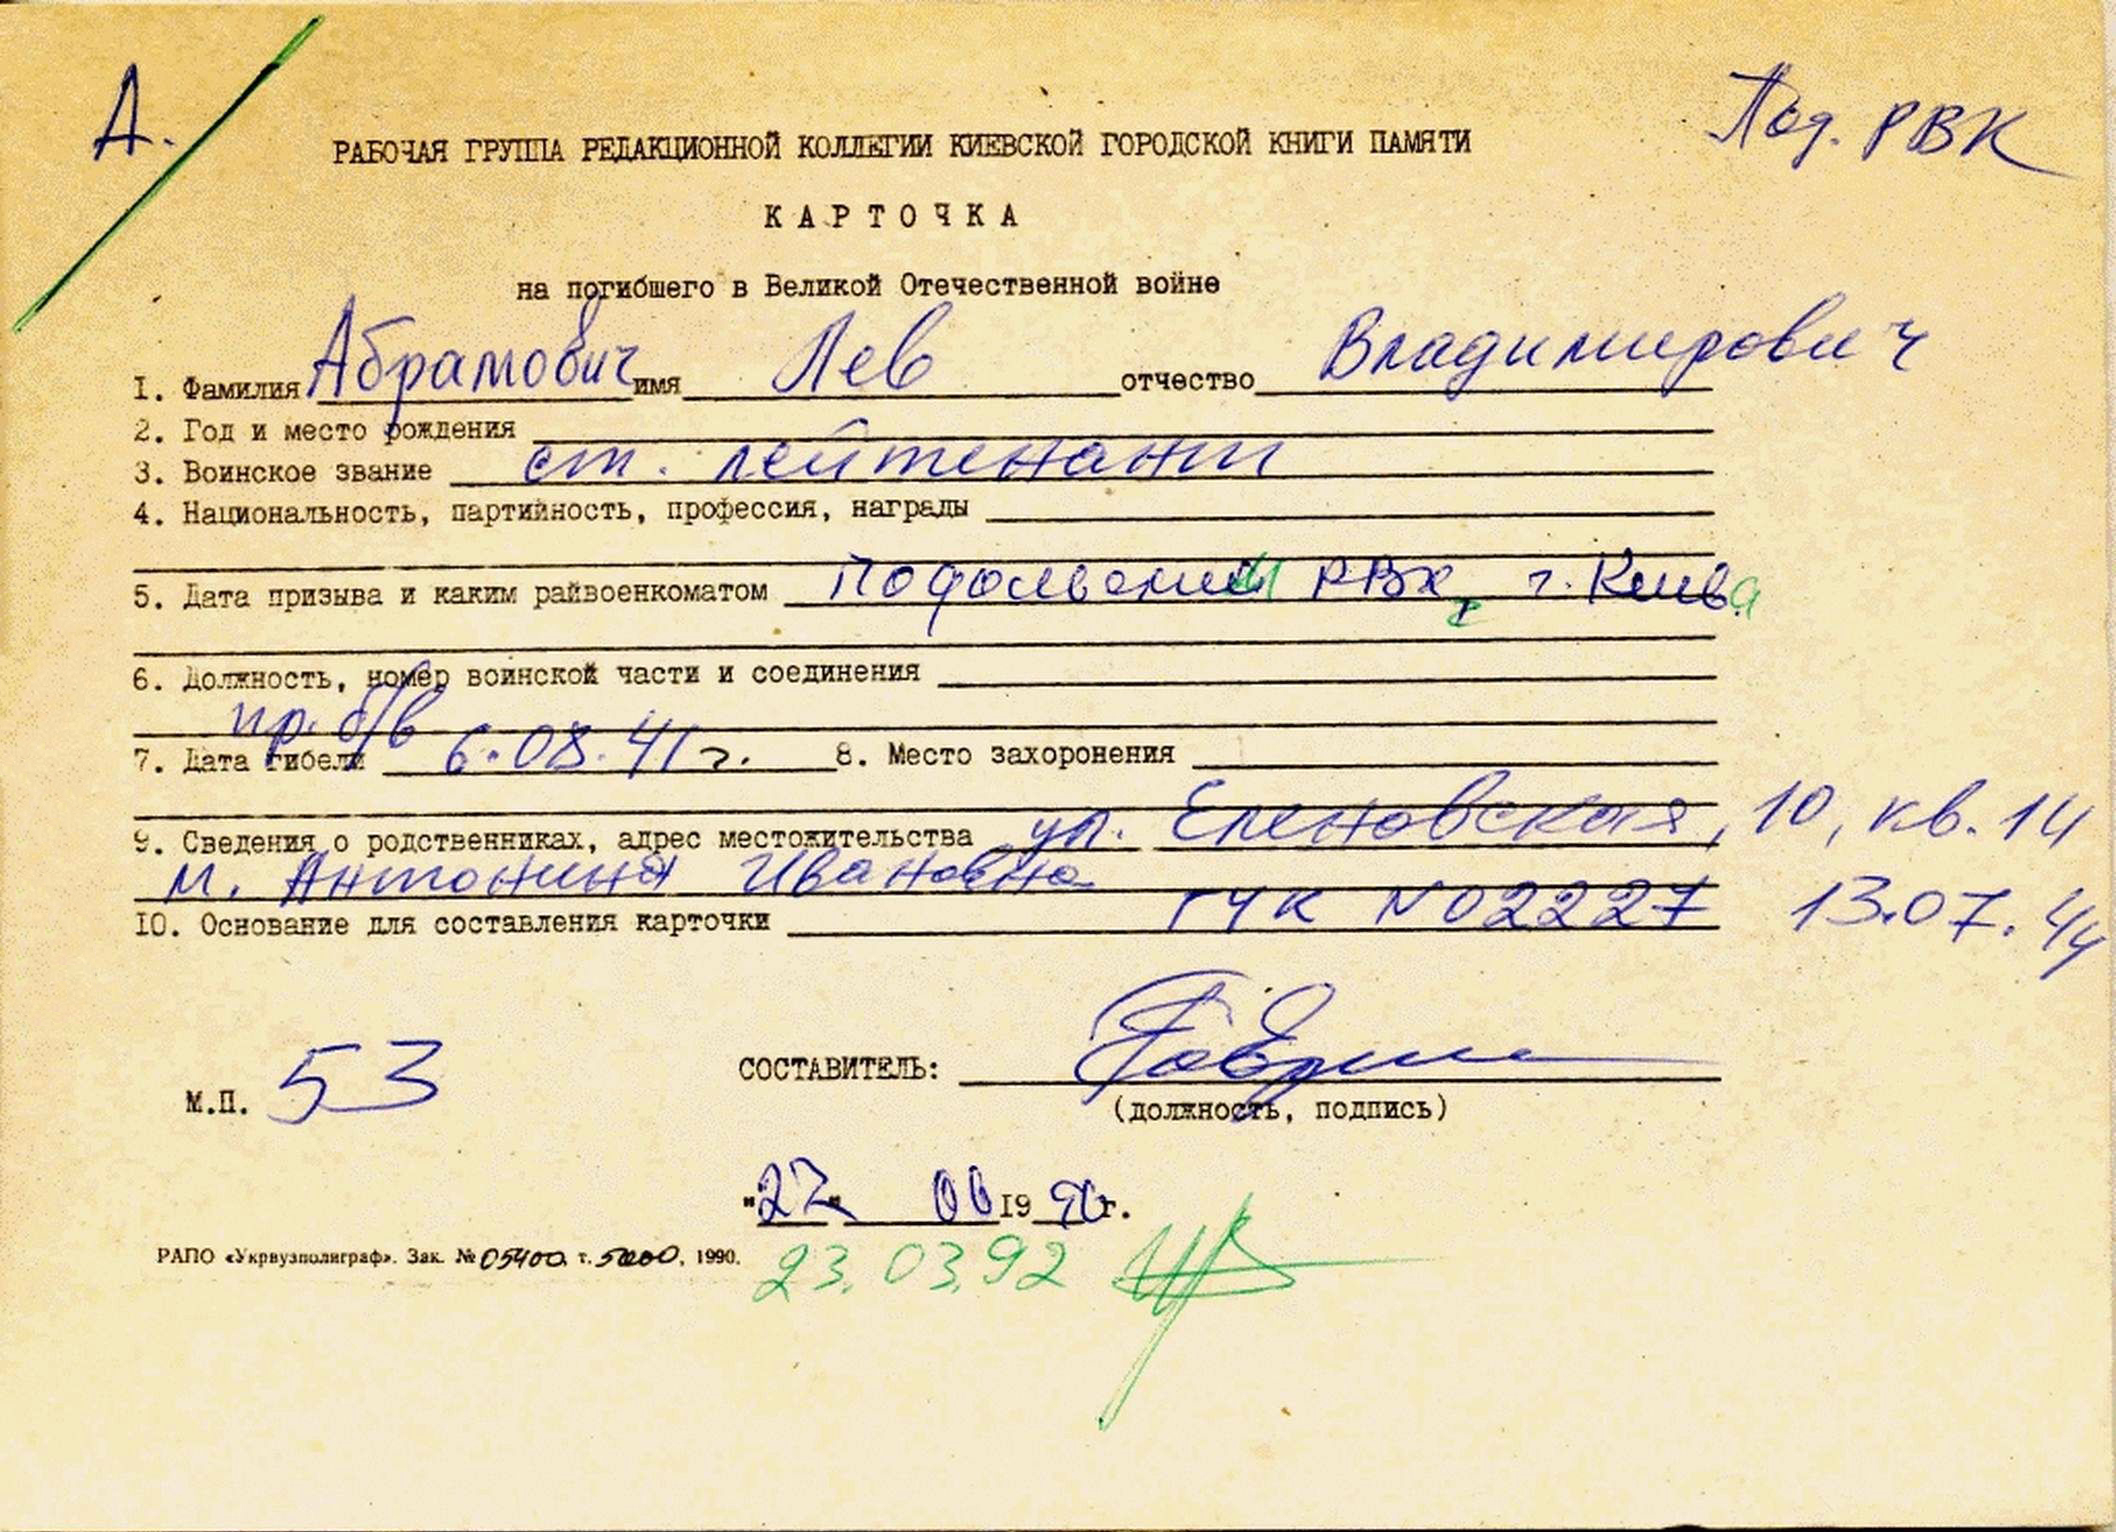 А.
Под. РВК
РАБОЧАЯ ГРУППА РЕДАКЦИОННОЙ КОЛЛЕГИИ КИЕВСКОЙ ГОРОДСКОЙ КНИГИ ПАМЯТИ
КАРТОЧКА
на погибшего в Великой Отечественной войне
1. Фамилия Абрамович имя Лев отчество Владимирович
2. Год и место рождения
3. Воинское звание ст. лейтенант
4. Национальность, партийность, профессия, награды
5. Дата призыва и каким райвоенкоматом Подольский РВК, г. Киева
6. Должность, номер воинской части и соединения
пр. б/в
7. Дата гибели 6.08.41 г. 8. Место захоронения
9. Сведения о родственниках, адрес местожительства ул. Еленовская, 10, кв. 14
м. Антонина Ивановна
10. Основание для составления карточки ГУК №02227 13.07.44
СОСТАВИТЕЛЬ:
М.П. 53
(должность, подпись)
"22" 06 19 90 г.
РАПО «Укрвузполиграф». Зак. № 05400, т. 5000, 1990.
23.03.92